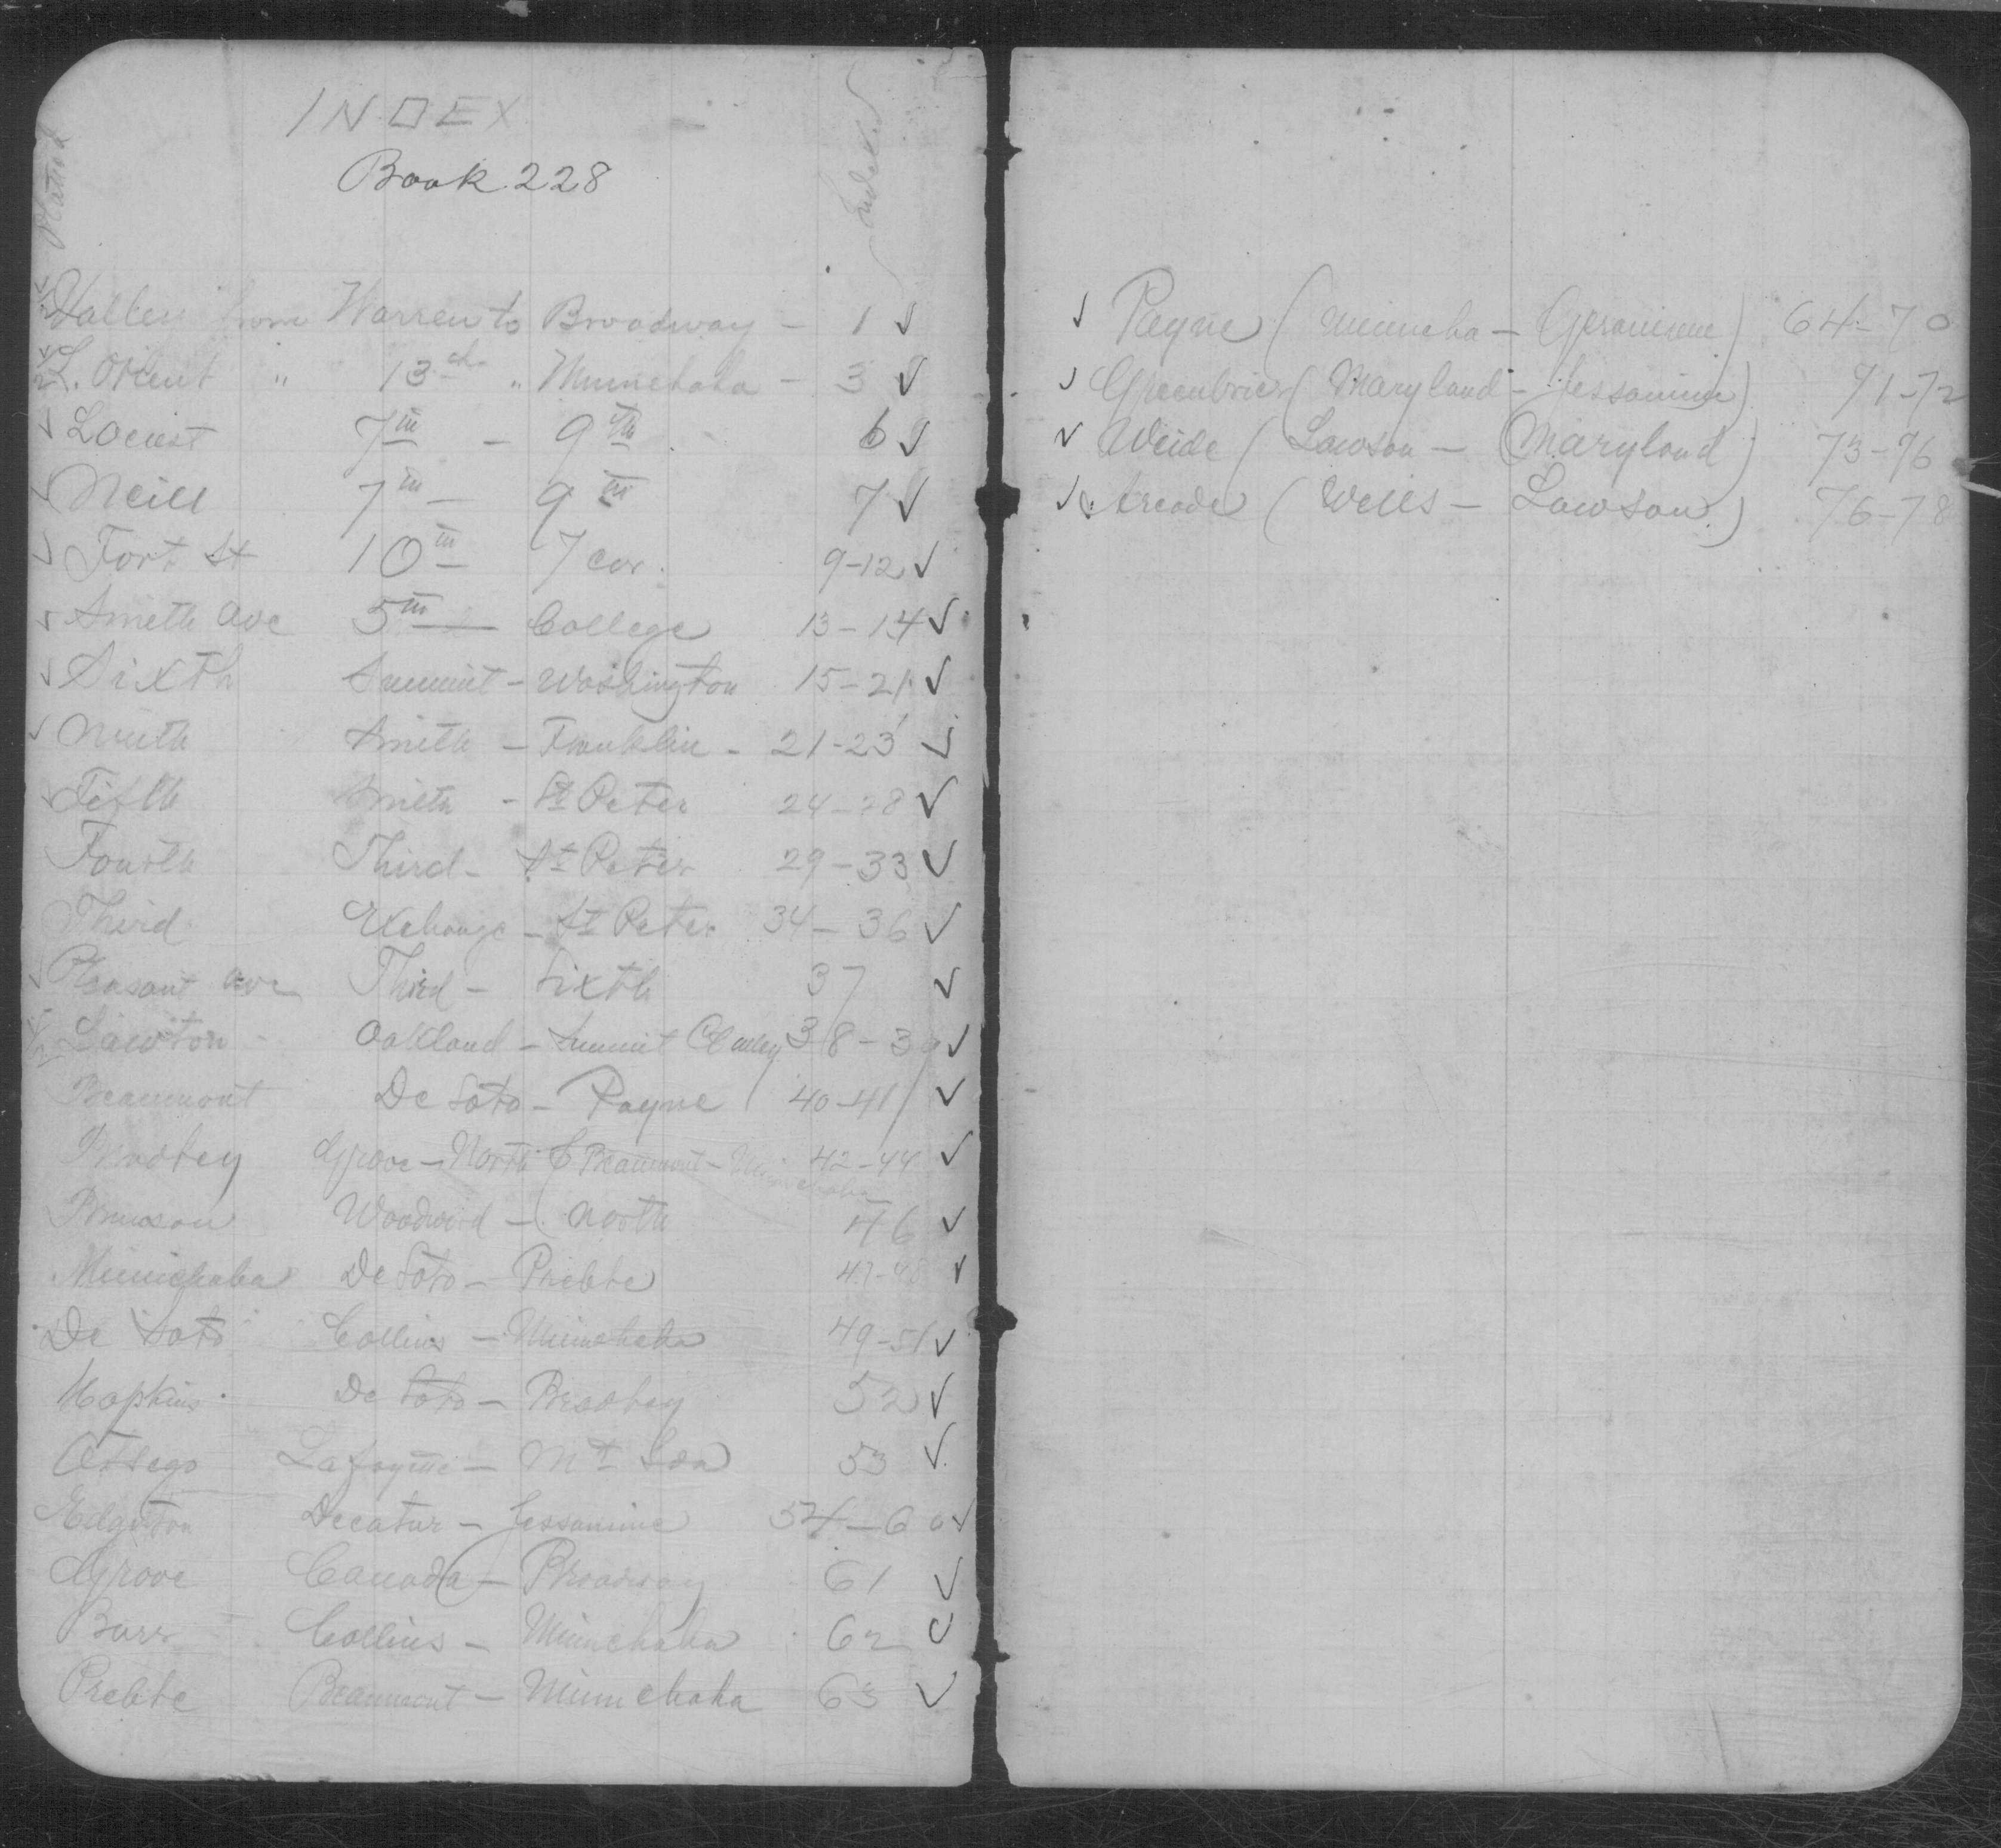 INDEX
Book 228
Platted
Indexed
Valley from Warren to Broadway - 1 ✓
L. Orient " 13th " Minnehaha - 3 ✓
✓ Locust 7th - 9th 6 ✓
✓ Neill 7th - 9th 7 ✓
✓ Fort St 10th 7 cor. 9-12 ✓
✓ Smith Ave 5th - College 13-14 ✓
✓ Sixth Summit - Washington 15-21 ✓
✓ Ninth Smith - Franklin - 21-23 ✓
✓ Fifth Smith - St Peter 24-28 ✓
Fourth Third - St Peter 29-33 ✓
Third Exchange - St Peter 34-36 ✓
✓ Pleasant Ave Third - Sixth 37 ✓
Lawton - Oakland - Summit 38-39 ✓
Beaumont De Soto - Payne 40-41 ✓
Bradley Grove - North & Beaumont - Minnehaha 42-44 ✓
Brunson Woodward - North 46 ✓
Minnehaha De Soto - Preble 47-48 ✓
De Soto Collins - Minnehaha 49-51 ✓
Hopkins De Soto - Bradley 52 ✓
Otsego Lafayette - Mt Ida 53 ✓
Edgerton Decatur - Jessamine 54-60 ✓
Grove Canada - Broadway 61 ✓
Burr Collins - Minnehaha 62 ✓
Preble Beaumont - Minnehaha 63 ✓
✓ Payne (Minneha - Geranium) 64-70
✓ Greenbrier (Maryland - Jessamine) 71-72
✓ Weide (Lawson - Maryland) 73-76
✓ Arcade (Wells - Lawson) 76-78